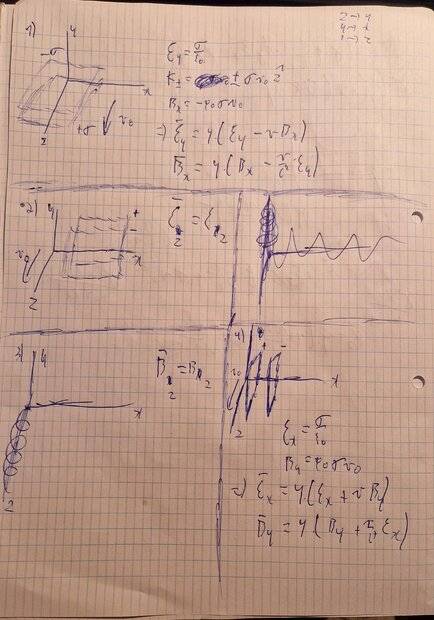 z → y
y → x
x → z
1)
y
-σ
x
z
+σ
v₀
Ɛy = σ/ε₀
K± = ± σ v₀ ẑ
Bx = -μ₀σv₀
=> Ɛ̄y = γ(Ɛy - vBx)
B̄x = γ(Bx - v/c² Ɛy)
2)
y
+
-
x
v₀
z
Ɛ̄z = Ɛz
3)
y
x
z
B̄z = Bz
4)
+
-
v₀
x
z
Ɛx = σ/ε₀
By = μ₀σv₀
=> Ɛ̄x = γ(Ɛx + vBy)
B̄y = γ(By + v/c² Ɛx)